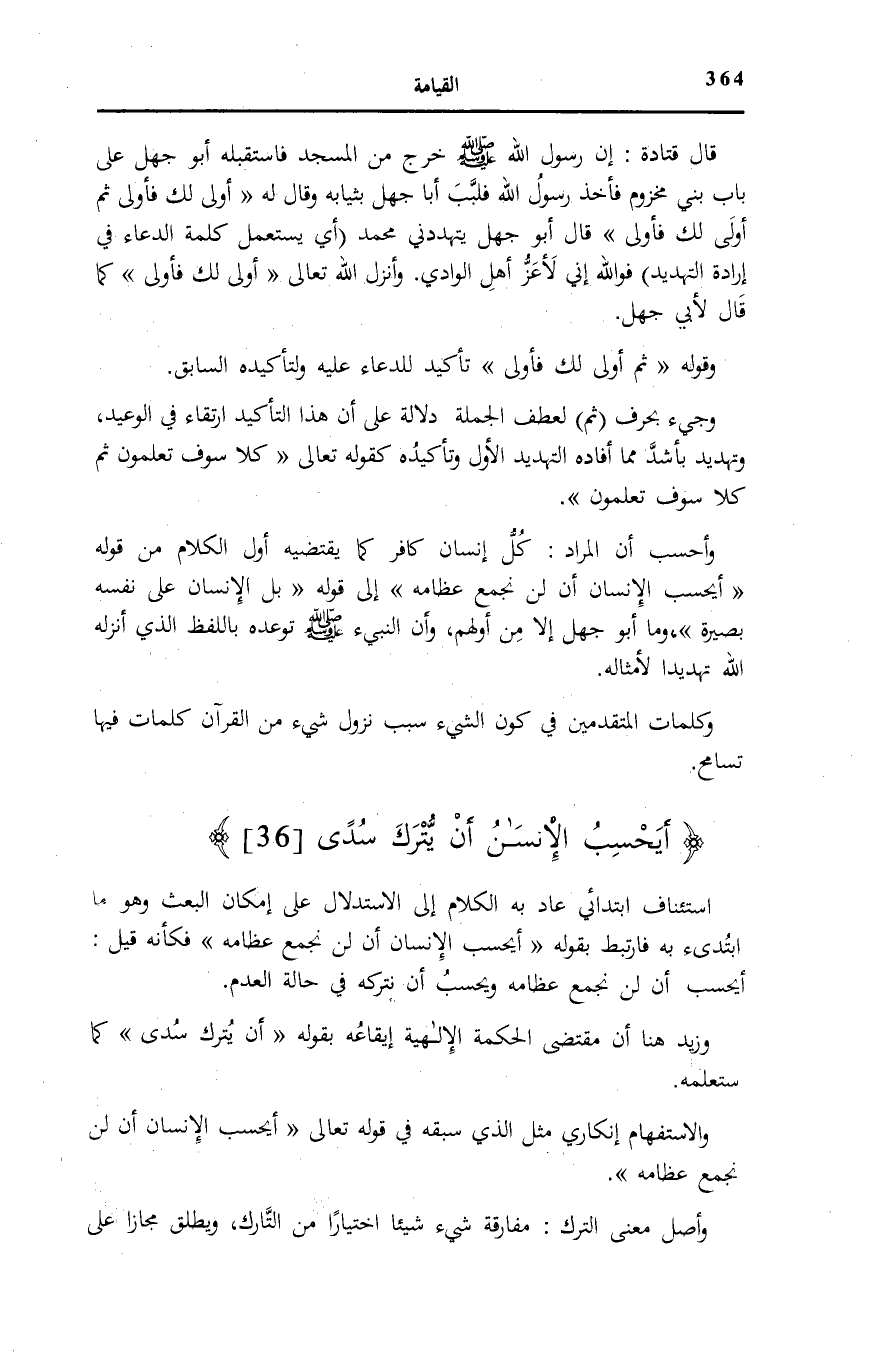 364
القيامة
قال قتادة : إن رسول الله ﷺ خرج من المسجد فاستقبله أبو جهل على
باب بني مخزوم فأخذ رسولُ الله فلبَّبَ أبا جهل بثيابه وقال له « أولى لك فأولى ثم
أولَى لك فأولى » قال أبو جهل يتهددني محمد (أي يستعمل كلمة الدعاء في
إرادة التهديد) فوالله إني لَأعَزُّ أهلِ الوادي. وأنزل الله تعالى « أولى لك فأولى » كما
قَال لأبي جهل.
وقوله « ثم أولى لك فأولى » تأكيد للدعاء عليه ولتأكيده السابق.
وجيء بحرف (ثم) لعطف الجملة دلالة على أن هذا التأكيد ارتقاء في الوعيد،
وتهديد بأشدَّ مما أفاده التهديد الأول وتأكيدُه كقوله تعالى « كلا سوف تعلمون ثم
كلا سوف تعلمون ».
وأحسب أن المراد : كُلُّ إنسان كافر كما يقتضيه أول الكلام من قوله
« أيحسب الإنسان أن لن نجمع عظامه » إلى قوله « بل الإنسان على نفسه
بصيرة »،وما أبو جهل إلا مِن أولهم، وأن النبيء ﷺ توعده باللفظ الذي أنزله
الله تهديدا لأمثاله.
وكلمات المتقدمين في كون الشيء سبب نزول شيء من القرآن كلمات فيها
تسامح.
﴿ أَيَحْسِبُ الإِْنسَـٰنُ أَنْ يُّتْرَكَ سُدًى [36] ﴾
استئناف ابتدائي عاد به الكلام إلى الاستدلال على إمكان البعث وهو ما
ابتُدىء به فارتبط بقوله « أيحسب الإنسان أن لن نجمع عظامه » فكأنه قيل :
أيحسب أن لن نجمع عظامه ويحسبُ أن نتركه في حالة العدم.
وزيد هنا أن مقتضى الحكمة الإلـٰهية إيقاعُه بقوله « أن يُترك سُدى » كما
ستعلمه.
والاستفهام إنكاري مثل الذي سبقه في قوله تعالى « أيحسب الإنسان أن لن
نجمع عظامه ».
وأصل معنى الترك : مفارقة شيء شيئا اختيارًا من التَّارك، ويطلق مجازا على